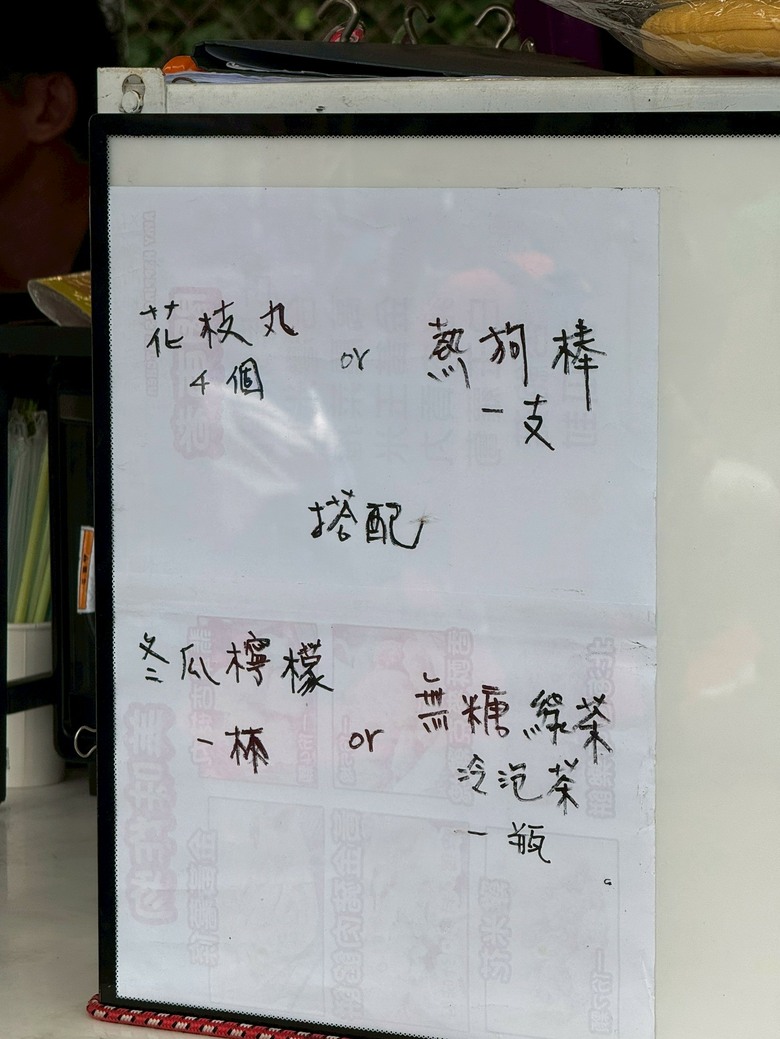 花枝丸 or 熱狗棒
4個 一支
搭配
冬瓜檸檬 or 無糖綠茶
一杯 冷泡茶
一瓶